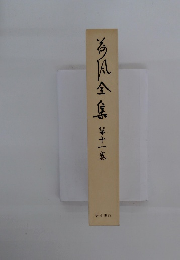 荷風全集
第十一巻